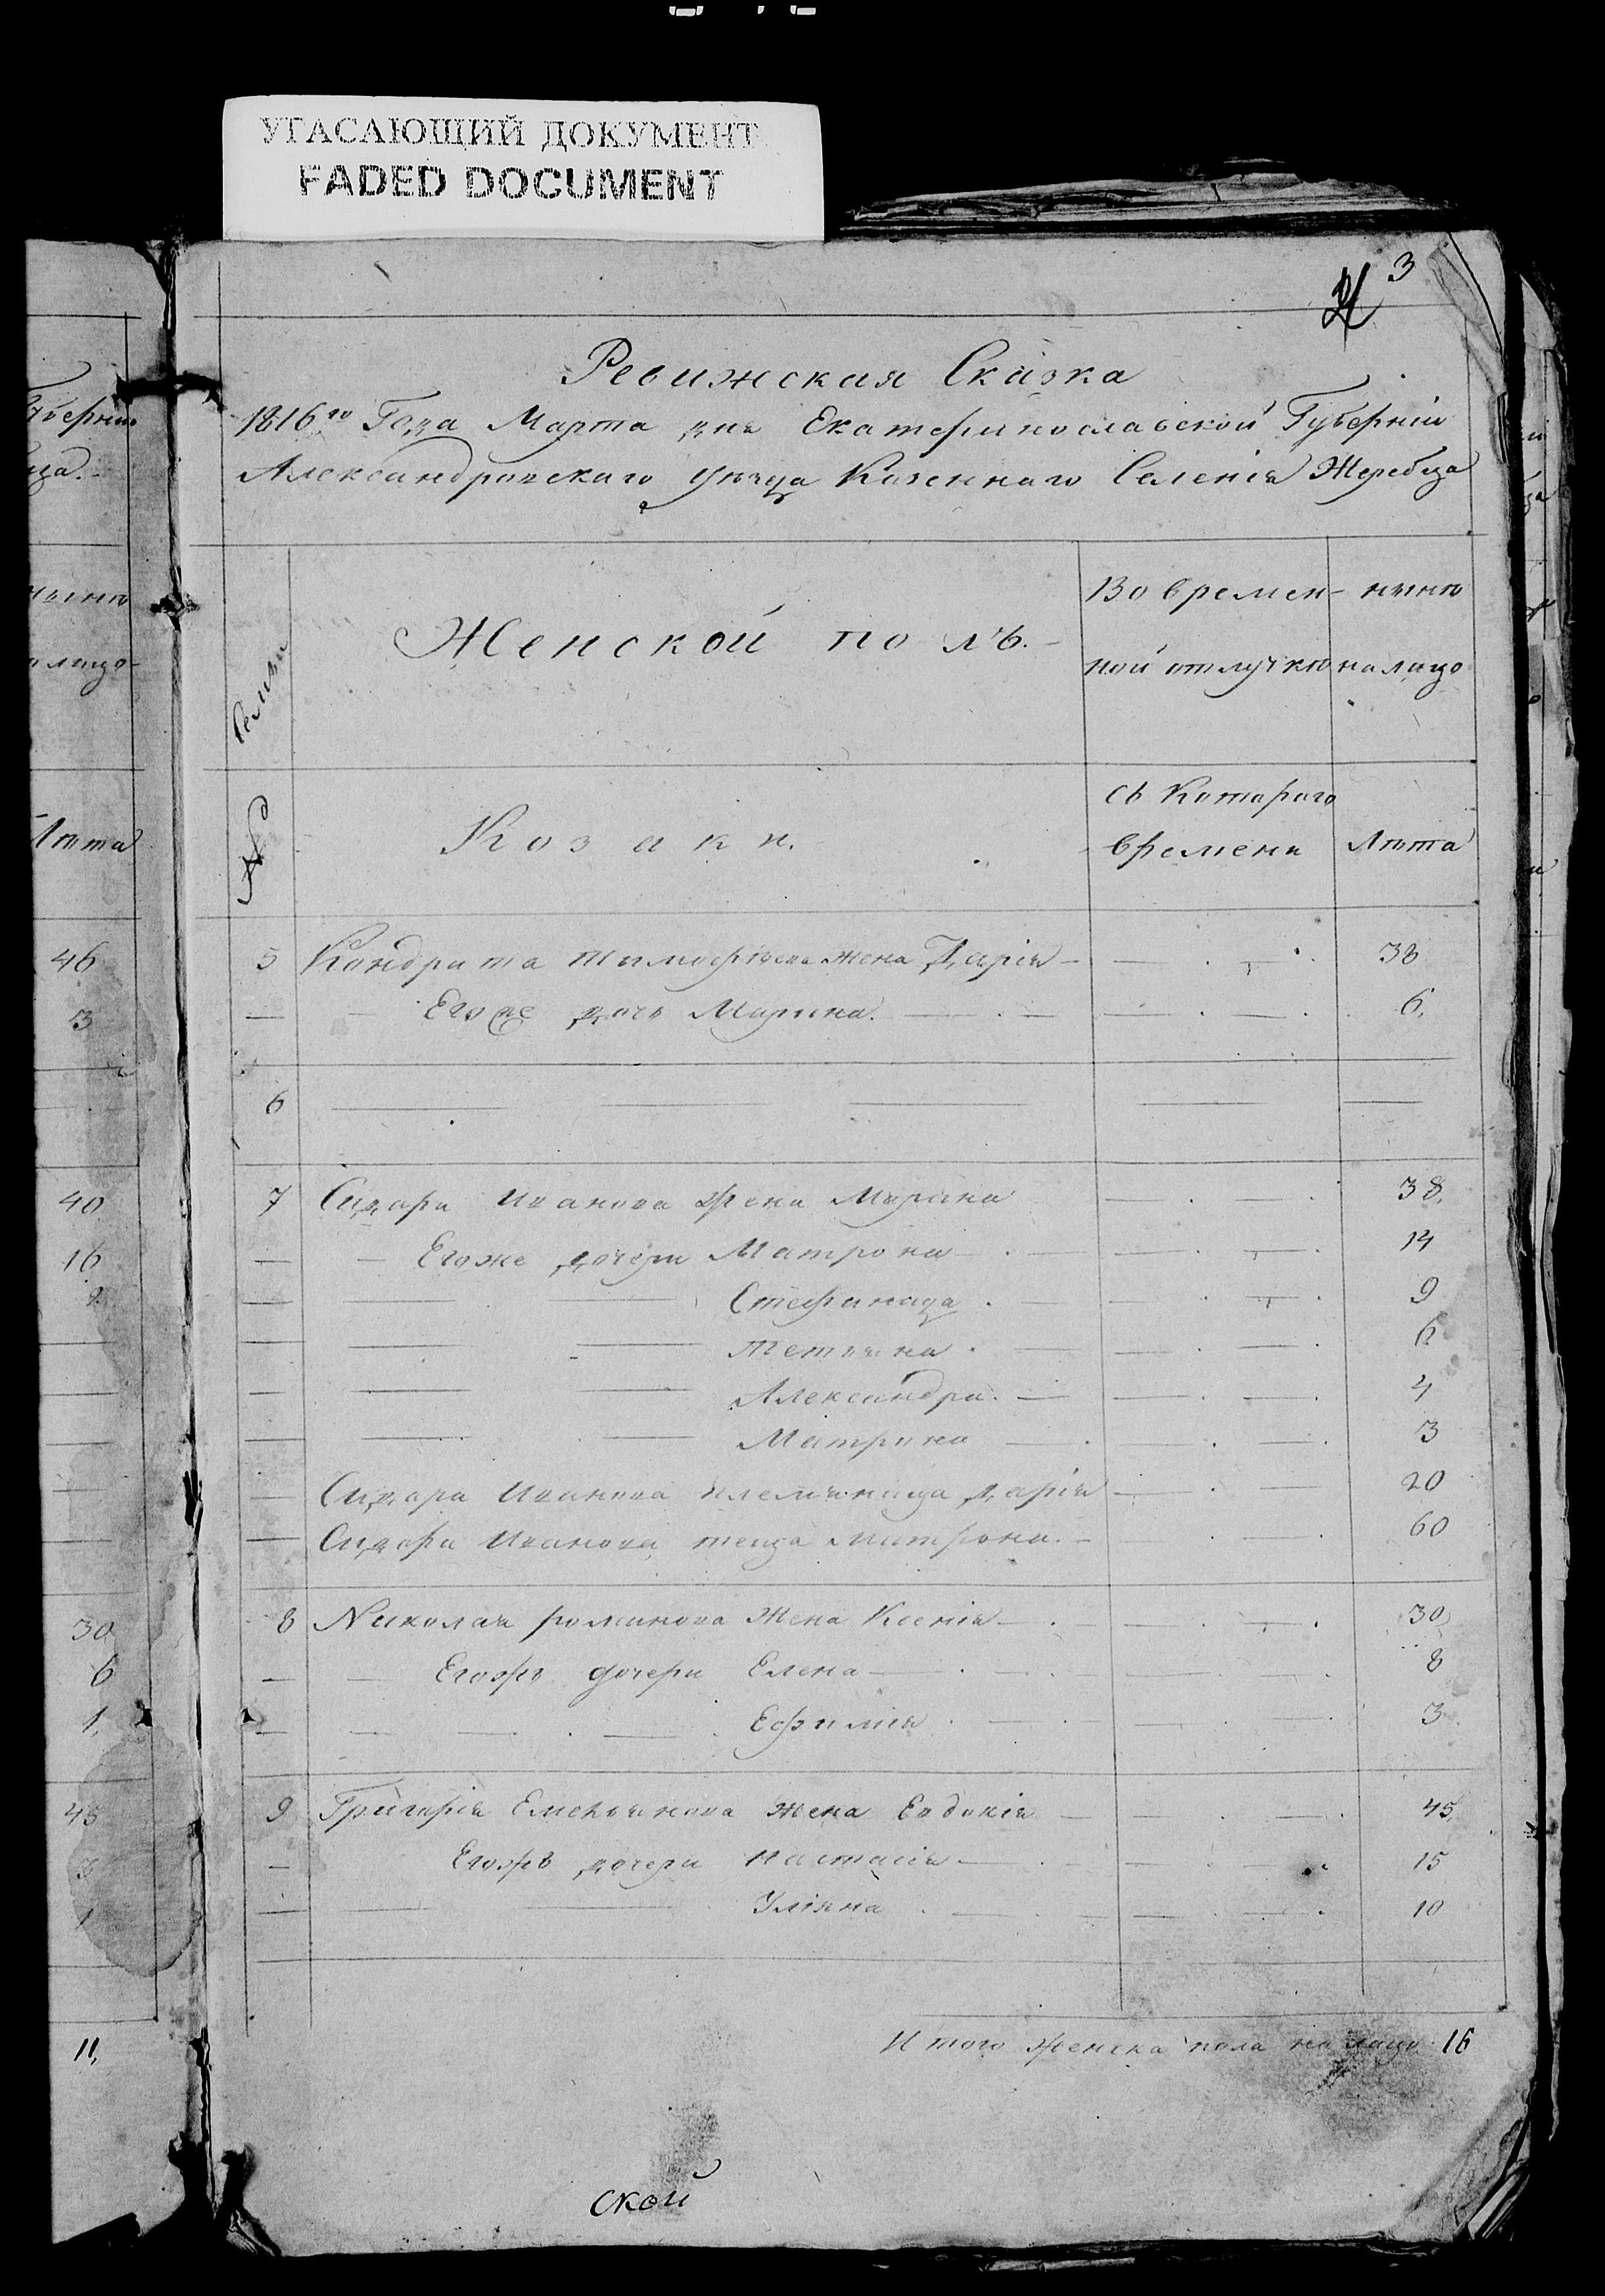 УГАСАЮЩИЙ ДОКУМЕНТ
FADED DOCUMENT
3
Ревижская Сказка
1816го Года Марта дня Екатеринославской Губерніи
Александровскаго уѣзда Казеннаго Селенія Жеребца
Женской полъ.
Во времен- нынѣ
ной отлучкѣ налицо
Козаки.
съ Котораго
времени Лѣта
5 Кондрата Тимофѣева жена Дарія 38
Егоже дочь Марина. 6.
6
7 Сидора Иванова жена Марина 38.
Егоже дочери Матрона 14
Стефанида 9
Тетяна 6
Александра 4
Матрона 3
Сидора Иванова племяница Дарія 20
Сидора Иванова теща Матрона. 60
8 Николая романова Жена Ксенія 30
Егожъ дочери Елена 8
Ефимія 3
9 Григорія Емельянова Жена Евдокія 45.
Егожъ дочери Настасія 15
Уліяна 10
Итого женска пола на лицо 16
ской
губерніи
46
3
40
16
30
6
1.
45
11.
Лѣта